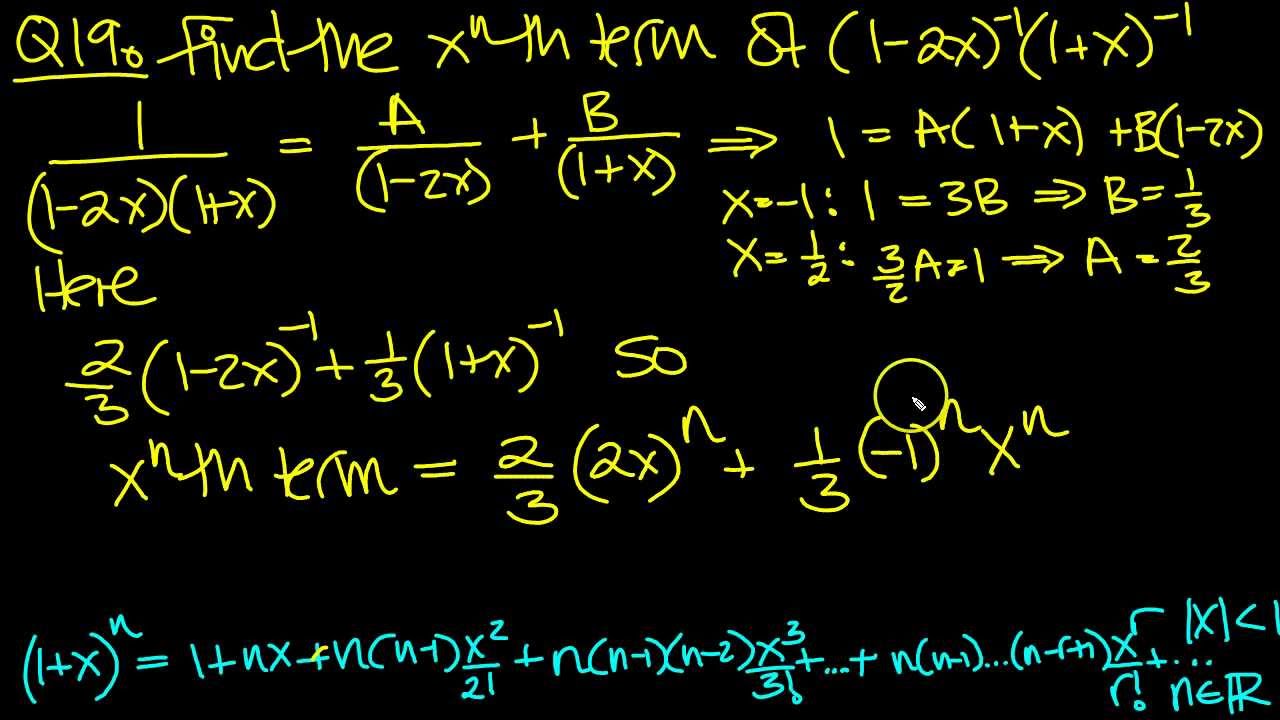 Q19. Find the xⁿ th term of (1-2x)⁻¹(1+x)⁻¹
1/((1-2x)(1+x)) = A/(1-2x) + B/(1+x) ⇒ 1 = A(1+x) + B(1-2x)
x=-1: 1 = 3B ⇒ B = 1/3
x=1/2: 3/2 A=1 ⇒ A = 2/3
Here
2/3 (1-2x)⁻¹ + 1/3 (1+x)⁻¹ so
xⁿ th term = 2/3 (2x)ⁿ + 1/3 (-1)ⁿ xⁿ
(1+x)ⁿ = 1+nx+n(n-1)x²/2! + n(n-1)(n-2)x³/3! + ... + n(n-1)...(n-r+1)xʳ/r! + ... |x|<1
n∈ℝ